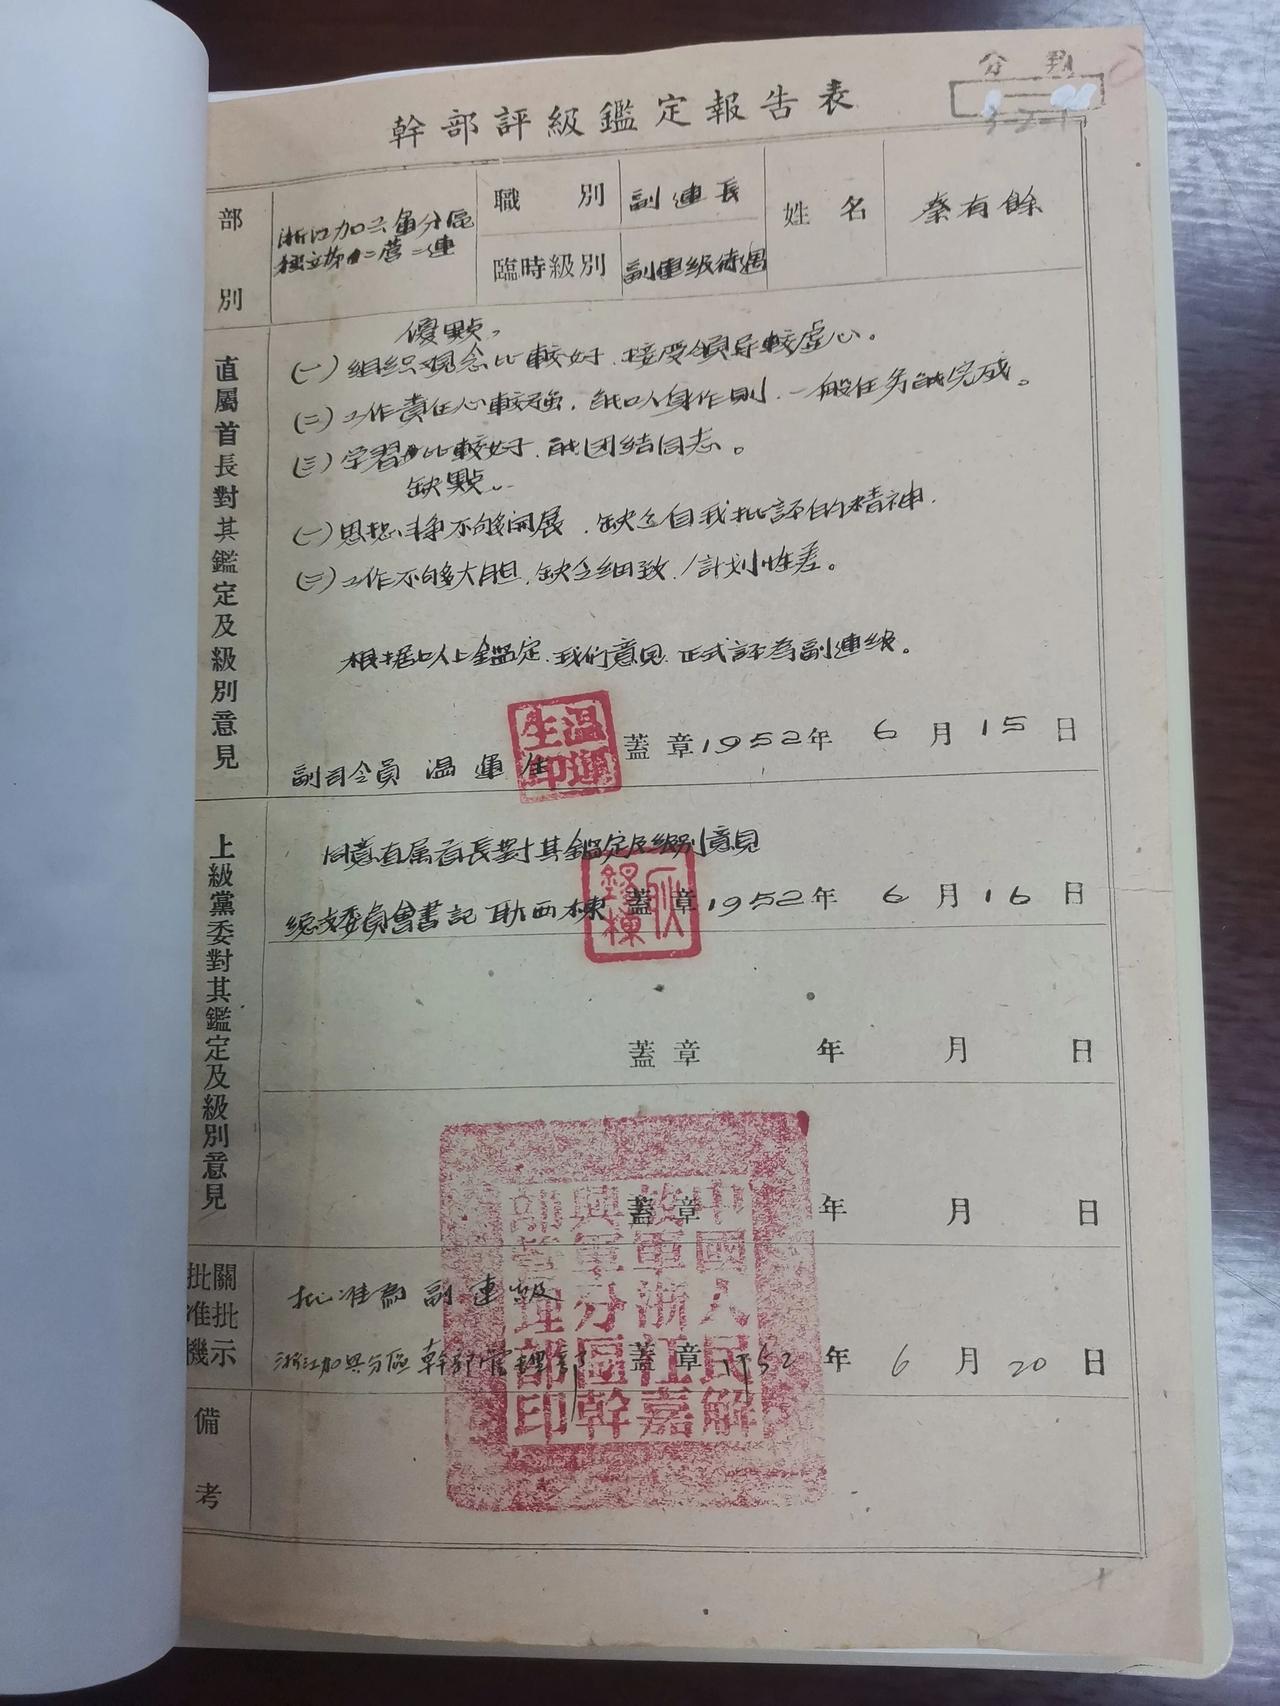 分 類
3-2-1
幹部評級鑑定報告表
部別
浙江加兴軍分區
独立第 二营二連
職別
副連長
臨時級別
副連級待遇
姓名
秦有餘
直屬首長對其鑑定及級別意見
優點,
(一)組織观念比較好,接受領导較虚心。
(二)工作責任心較強,能以身作則,一般任务能完成。
(三)学習比較好,能团结同志。
缺點:
(一)思想斗争不够開展,缺乏自我批評的精神.
(二)工作不够大胆,缺乏细致,計划性差。
根据以上鑑定,我們意見,正式評為副連級。
副司令員 温運生
温運生印
蓋章1952年 6月15日
上級黨委對其鑑定及級別意見
同意直属首長對其鑑定及級別意見
總支委員會書記 耿西棟 蓋章1952年 6月16日
蓋章 年 月 日
蓋章 年 月 日
批准機關批示
批准為副連級
浙江加興分區幹部管理部 蓋章1952年6月20日
中國人民解放軍浙江嘉興軍分區幹部管理部印
備考